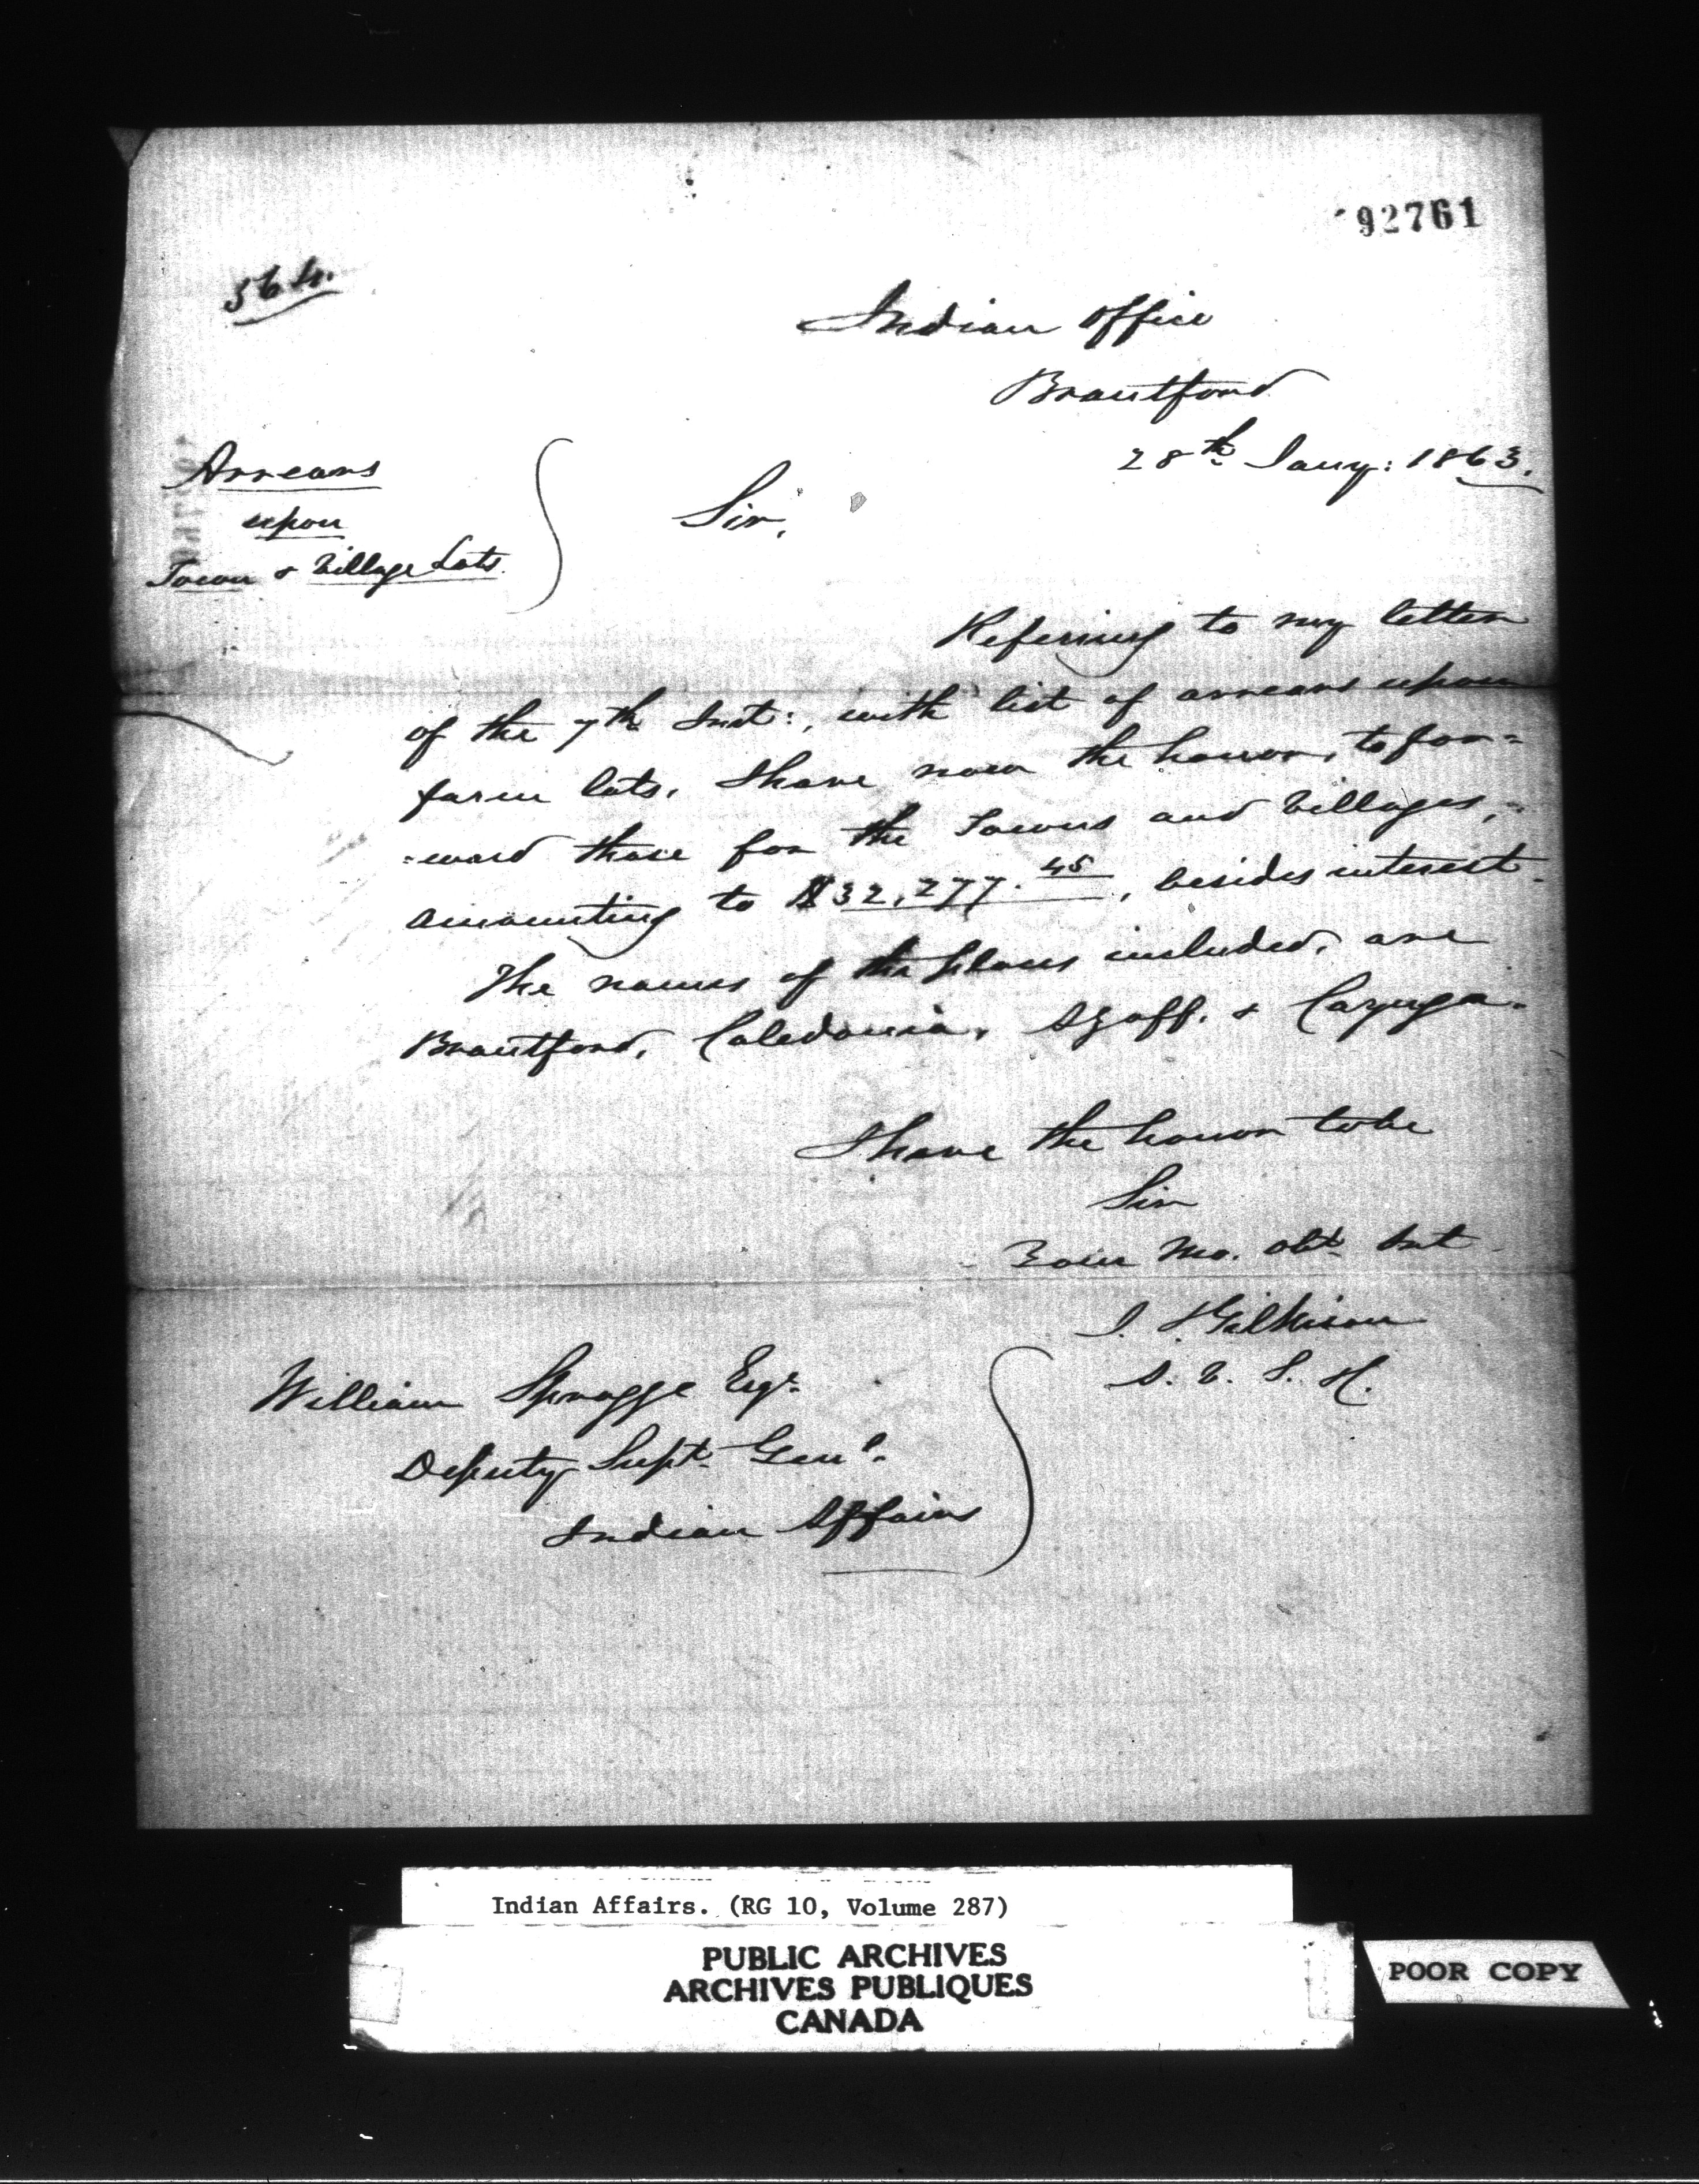 92761
564.
Indian Office
Brantford
28th Jany: 1863.
Arrears
upon
Town & Village Lots.
Sir,
Referring to my letter
of the 7th Inst:, with list of arrears upon
farm lots, I have now the honor, to for=
=ward those for the Towns and Villages,
amounting to $32,277.45, besides interest.
The names of the places included, are
Brantford, Caledonia, & Cayuga.
I have the honor to be
Sir
Your Mo. Obt Svt
J. T. Gilkison
V. S. I. A.
William Spragge Esqr.
Deputy Supt. Genl.
Indian Affairs
Indian Affairs. (RG 10, Volume 287)
PUBLIC ARCHIVES
ARCHIVES PUBLIQUES
CANADA
POOR COPY